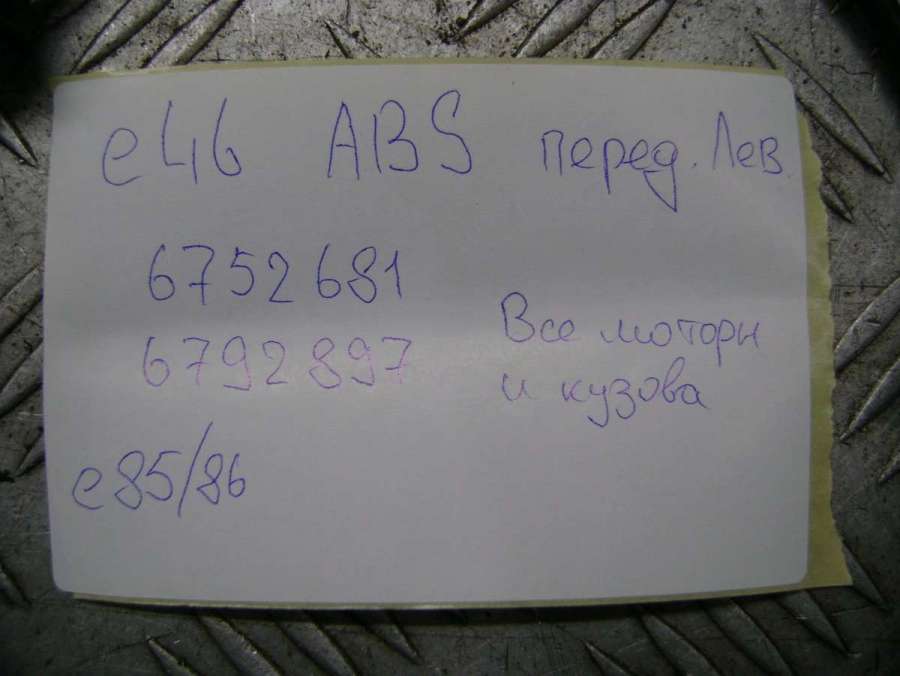 e46 ABS перед. Лев.
6752681
6792897
Все моторы
и кузова
e85/86